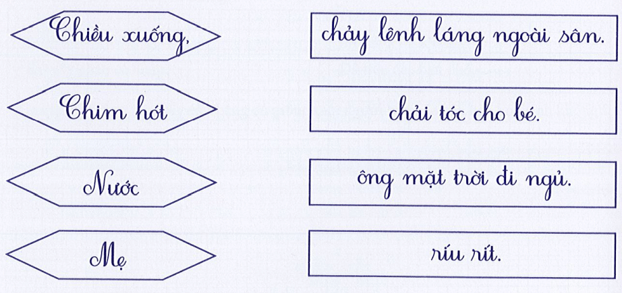 Chiều xuống,
chảy lênh láng ngoài sân.
Chim hót
chải tóc cho bé.
Nước
ông mặt trời đi ngủ.
Mẹ
ríu rít.